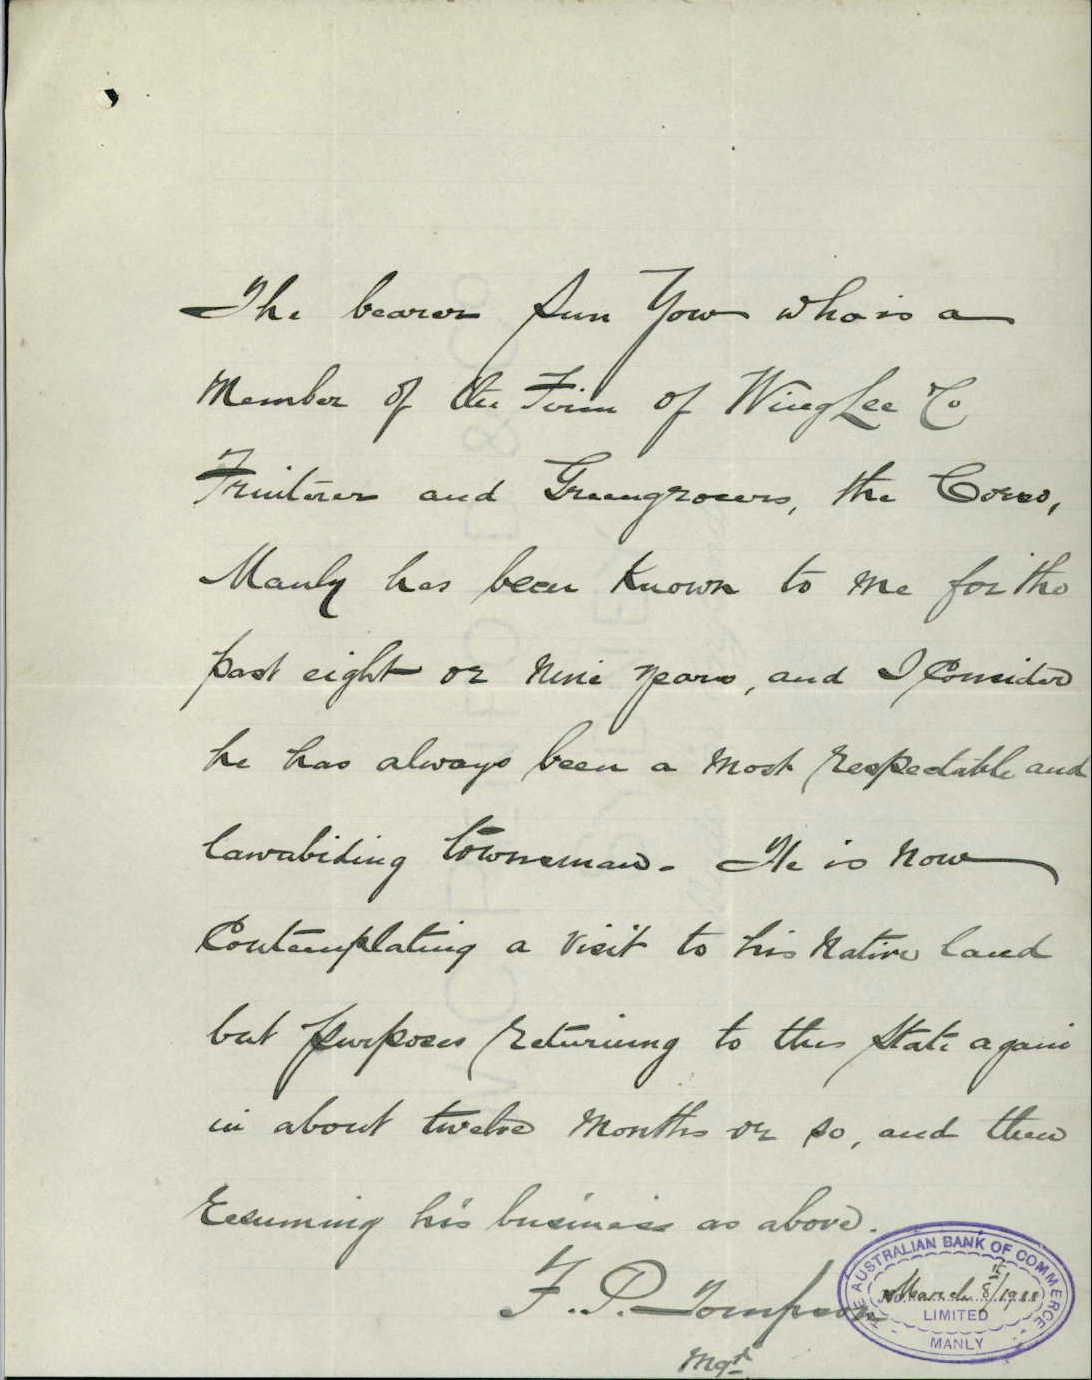 The bearer Sun Yow who is a
Member of the Firm of Wing Lee Co
Fruiterers and Greengrocers, the Corso,
Manly has been known to me for the
past eight or nine years, and I Consider
he has always been a most respectable and
lawabiding townsman. He is now
Contemplating a visit to his Native land
but purposes returning to this State again
in about twelve months or so, and then
resuming his business as above.
F. P. Tompson
Mgr
THE AUSTRALIAN BANK OF COMMERCE
March 8/19
LIMITED
MANLY